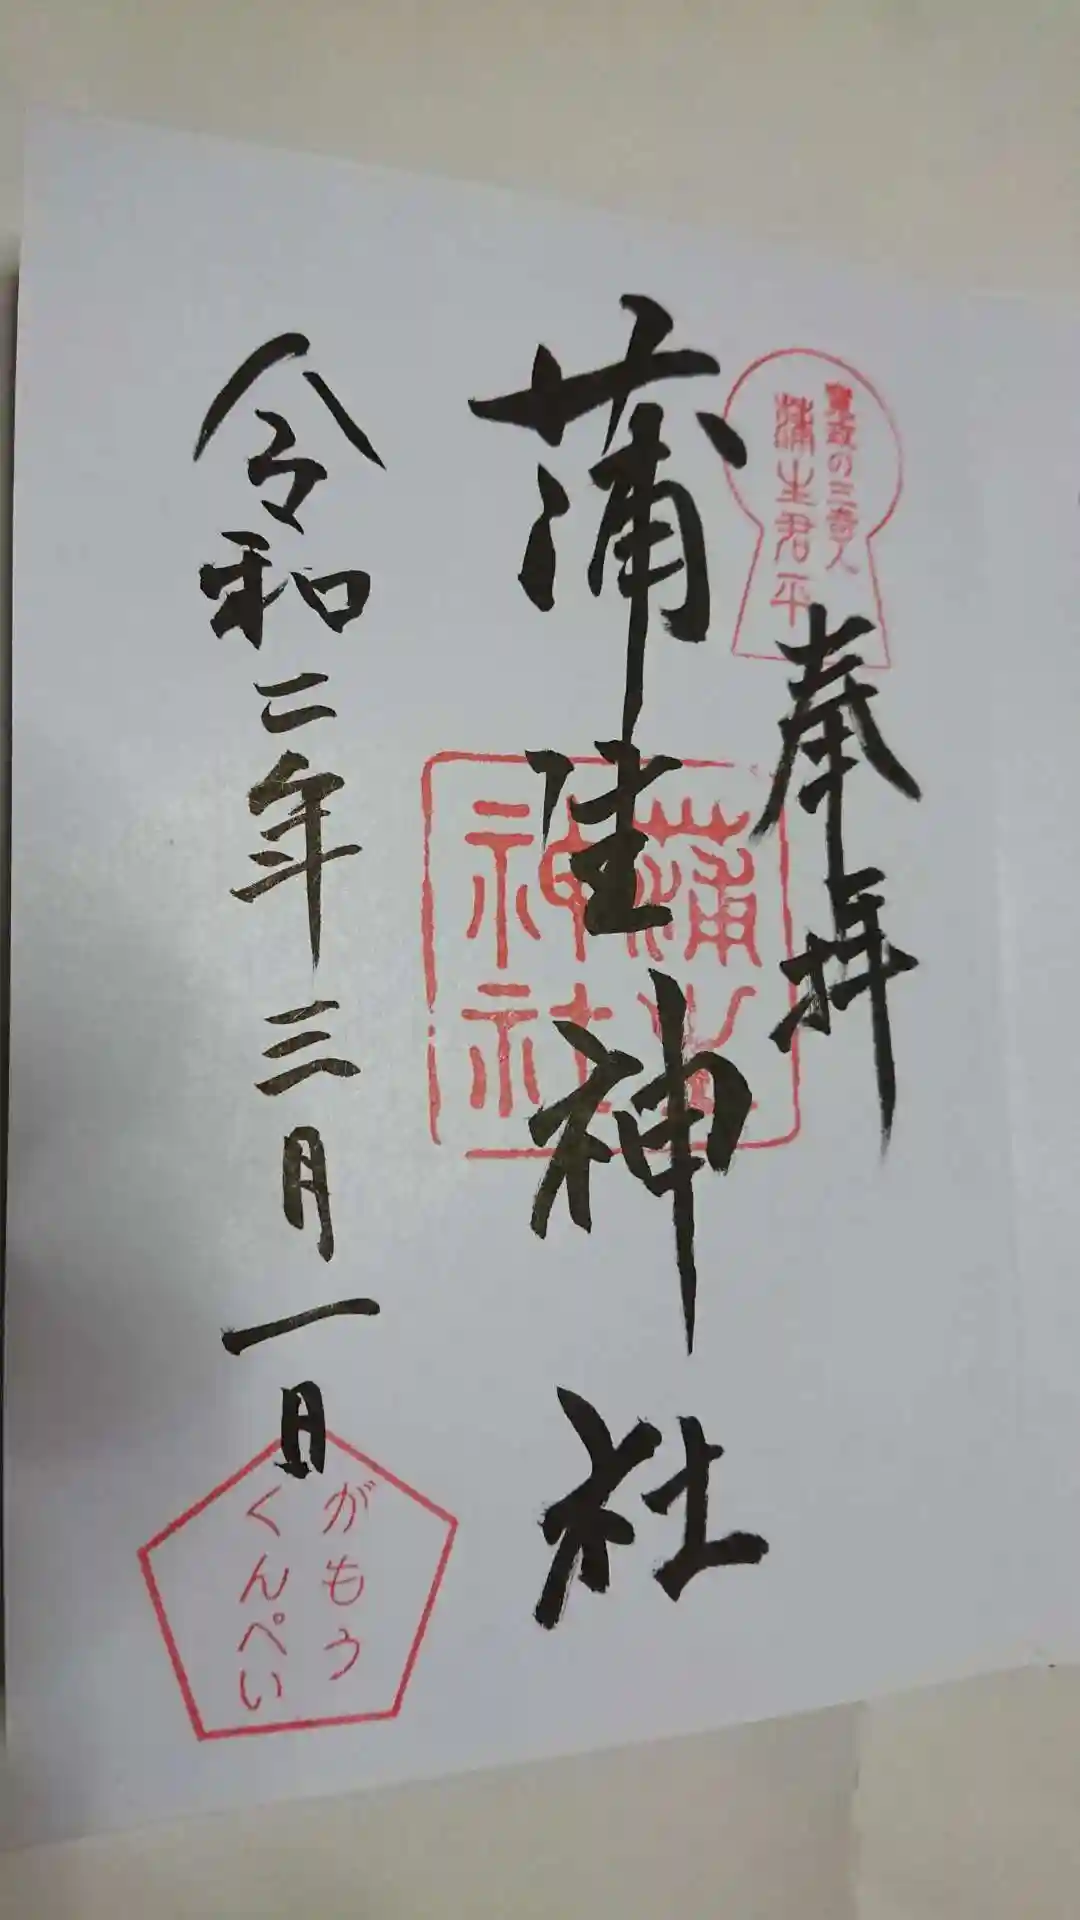 寛政の三奇人
蒲生君平
奉拝
蒲生神社
蒲生
神社
令和二年三月一日
がもう
くんぺい